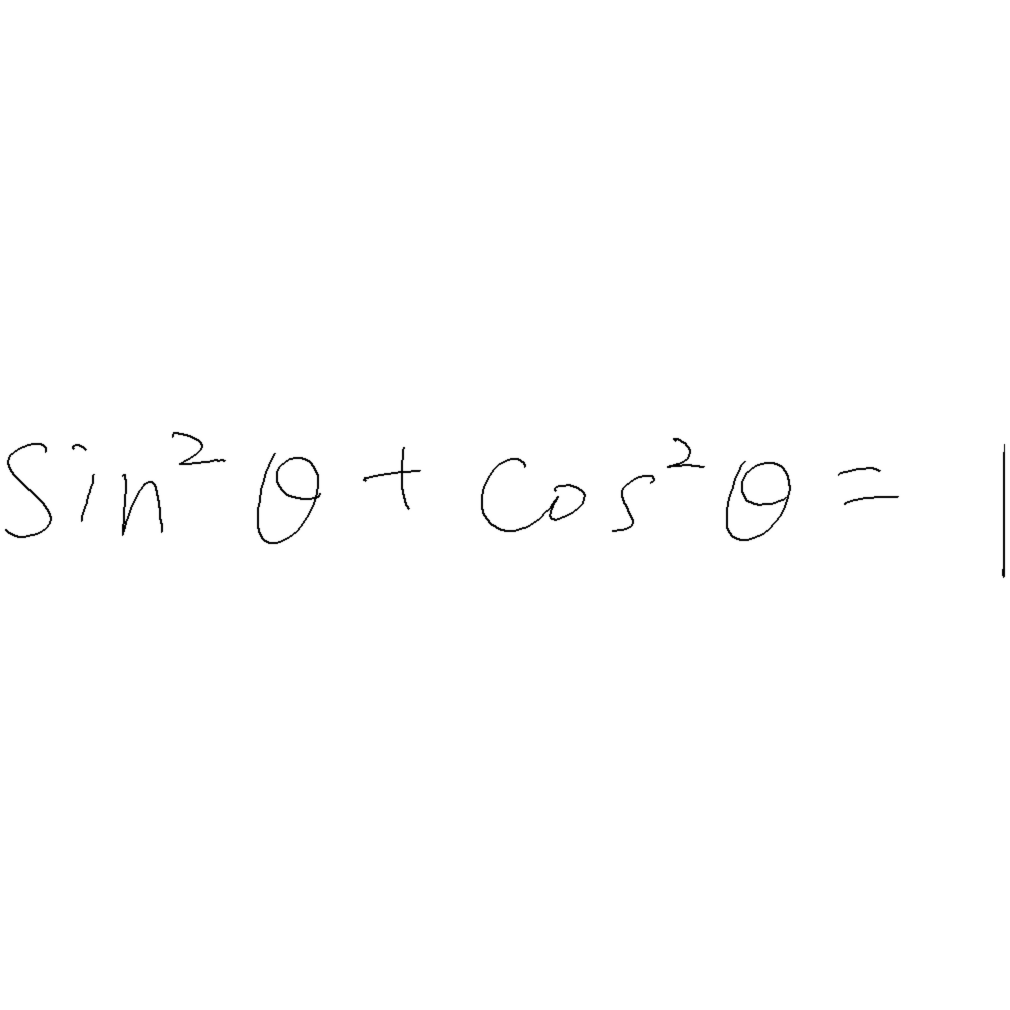 sin²θ + cos²θ = 1